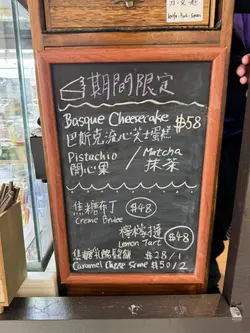 期間限定
Basque Cheesecake
巴斯克流心芝士蛋糕 $58
Pistachio / Matcha
開心果 抹茶
焦糖布丁 $48
Creme Brulee
檸檬撻 $48
Lemon Tart
焦糖乳酪鬆餅 $28/1
Caramel Cheese Scone $50/2